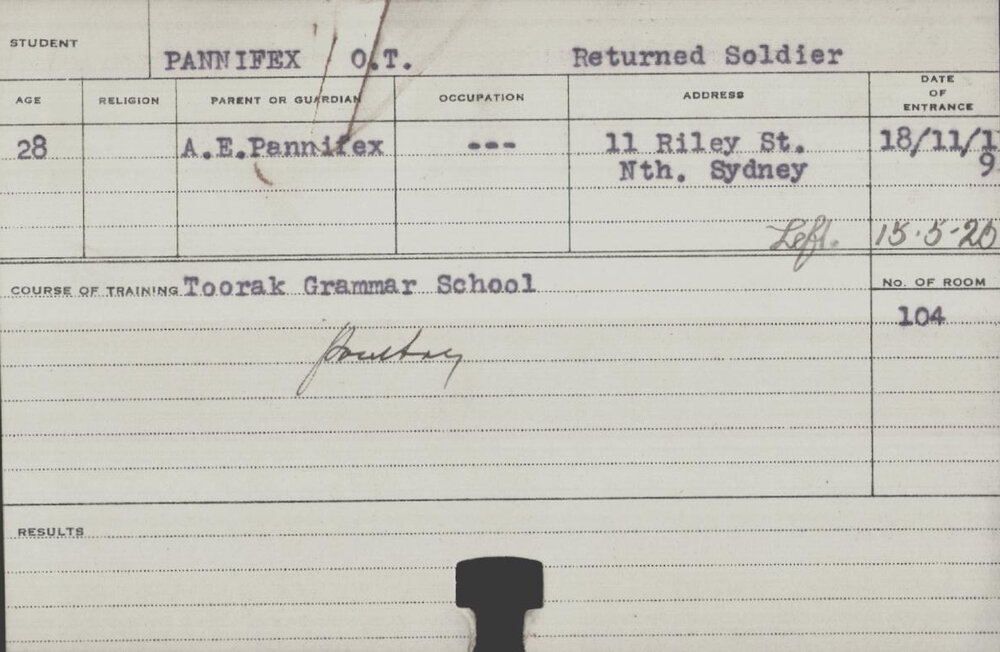 STUDENT
PANNIFEX O.T. Returned Soldier
AGE RELIGION PARENT OR GUARDIAN OCCUPATION ADDRESS DATE OF ENTRANCE
28 A.E.Pannifex --- 11 Riley St. 18/11/1
Nth. Sydney 9
Left. 15.5.20
COURSE OF TRAINING Toorak Grammar School No. OF ROOM
104
Poultry
RESULTS